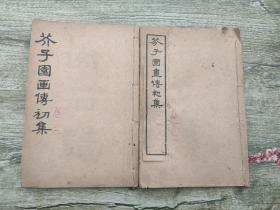 芥子園画傳初集
芥子園畫傳初集